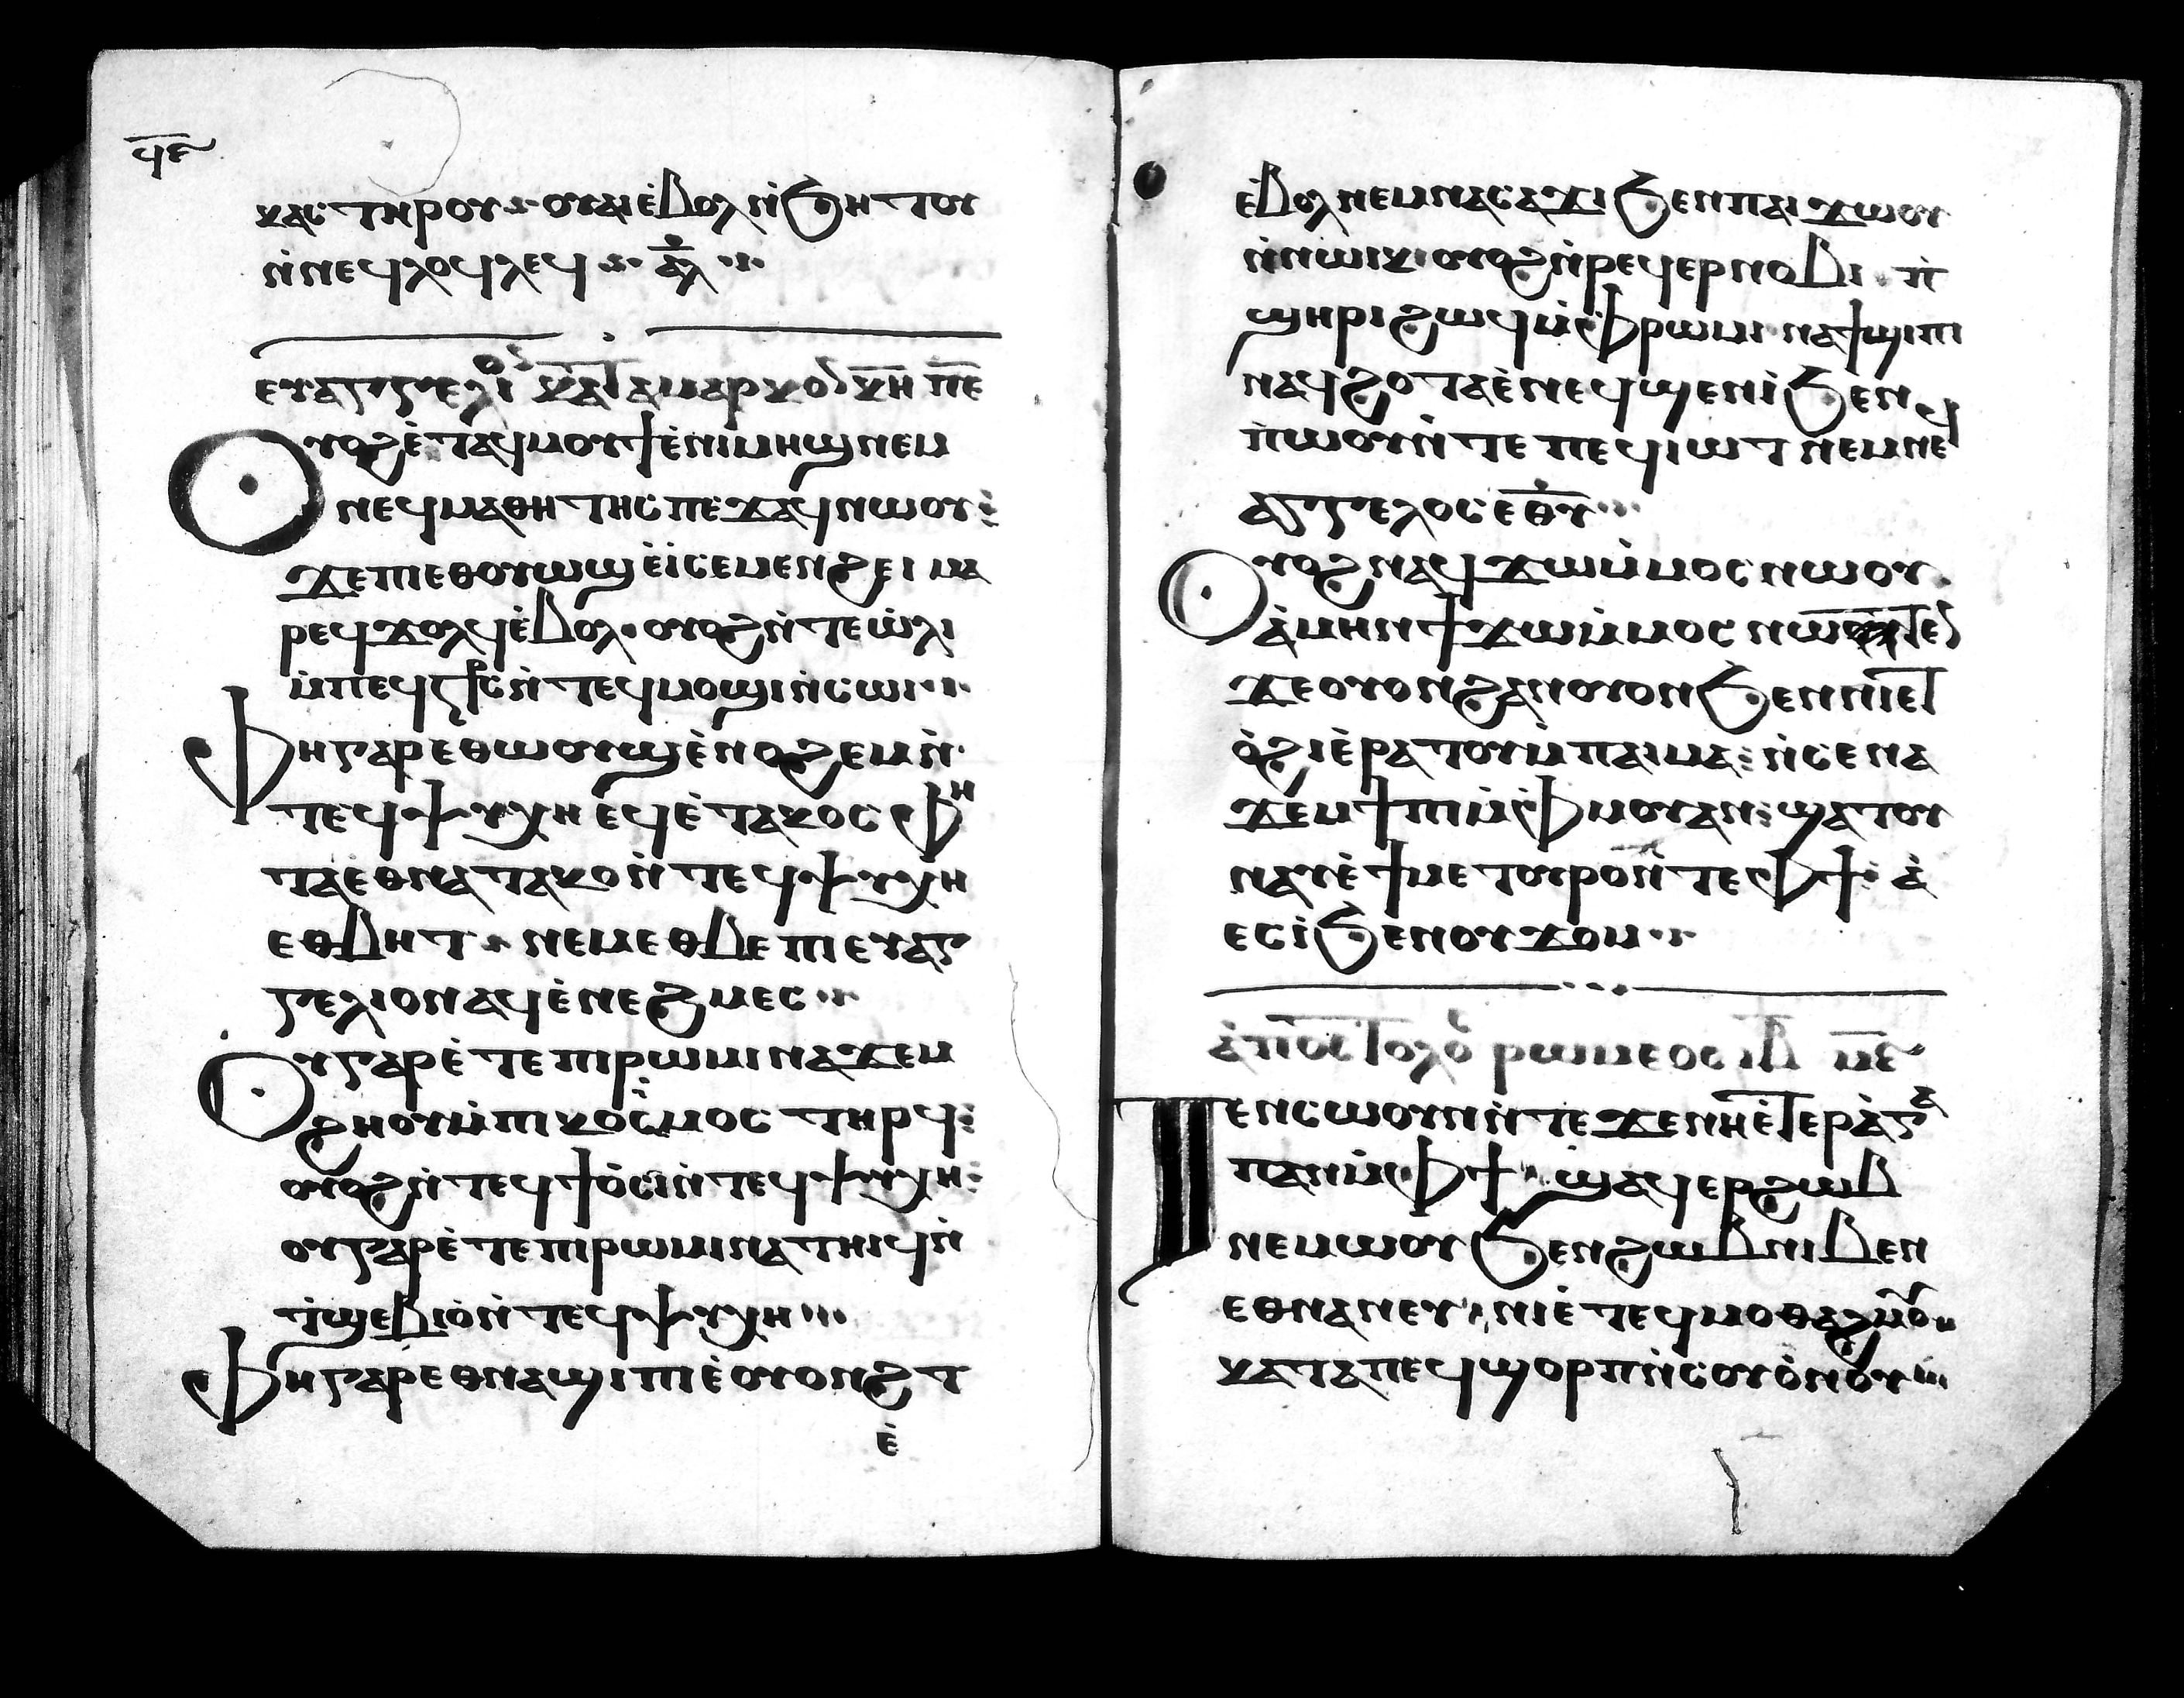 ϥⲉ
ⲕⲁⲥ ⲧⲏⲣⲟⲩ ⲟⲩⲁⲓ ⲉ̀ⲃⲟⲗ ⲛ̀ϧⲏⲧⲟⲩ
ⲛ̀ⲛⲉϥⲗⲟϥⲗⲉϥ ⲁ̅ⲗ̅
ⲉⲩⲁⲅⲅⲉⲗⲓ ⲕⲁⲧⲁ ⲙⲁⲣⲕⲟ ⲕ̅ⲏ̅ ⲡ̅ⲉ̅
Ⲟⲩⲟϩ ⲉ̀ⲧⲁϥⲙⲟⲩϯ ⲉ̀ⲡⲓⲙⲏϣ ⲛⲉⲙ
ⲛⲉϥⲙⲁⲑⲏⲧⲏⲥ ⲡⲉϫⲁϥ ⲛⲱⲟⲩ
ϫⲉ ⲡⲉⲑⲟⲩⲱϣ ⲉ̀ⲓ̀ ⲥⲉⲙⲉⲛϩⲉⲓ ⲙⲁ
ⲣⲉϥϫⲟⲗϥ ⲉ̀ⲃⲟⲗ ⲟⲩⲟϩ ⲛ̀ⲧⲉϥⲱ̀ⲗⲓ
ⲙ̀ⲡⲉϥⲥ̅ⲧ̅ⲥ̅ ⲛ̀ⲧⲉϥⲙⲟϣⲓ ⲛ̀ⲥⲱⲓ
Ⲫⲏ ⲅⲁⲣ ⲉⲑⲱⲟⲩⲱϣ ⲉ̀ⲛⲟϩⲉⲙ ⲛ̀
ⲧⲉϥⲯⲩⲭⲏ ⲉϥⲉ̀ⲧⲁⲕⲟⲥ ⲫⲏ
ⲇⲉ ⲉⲑⲛⲁⲧⲁⲕⲟ ⲛ̀ⲧⲉϥⲯⲩⲭⲏ
ⲉⲑⲃⲏⲧ ⲛⲉⲙ ⲉⲑⲃⲉ ⲡⲓⲉⲩⲁⲅ
ⲅⲉⲗⲓⲟⲛ ⲁϥⲉ̀ⲛⲉϩⲙⲉⲥ
Ⲟⲩ ⲅⲁⲣ ⲉ̀ⲧⲉ ⲡⲓⲣⲱⲙⲓ ⲛⲁϫⲉⲙ
ϩⲏⲟⲩ ⲙ̀ⲡⲓⲕⲟⲥⲙⲟⲥ ⲧⲏⲣϥ
ⲟⲩⲟϩ ⲛ̀ⲧⲉϥϯⲟ̀ⲥⲓ ⲛ̀ⲧⲉϥⲯⲩⲭⲏ
ⲟⲩ ⲅⲁⲣ ⲉ̀ⲧⲉ ⲡⲓⲣⲱⲙⲓ ⲛⲁⲧⲏⲓϥ ⲛ̀
ⲧ̀ϣⲉⲃⲓⲟ̀ ⲛ̀ⲧⲉϥⲯⲩⲭⲏ
Ⲫⲏ ⲅⲁⲣ ⲉⲑⲛⲁϣⲓⲡⲓ ⲉ̀ⲟⲩⲟⲛϩⲧ
ⲉ̀
ⲉ̀ⲃⲟⲗ ⲛⲉⲙ ⲛⲁⲥⲁϫⲓ ϧⲉⲛ ⲡⲁⲓϫⲱⲟⲩ
ⲛ̀ⲛⲱⲓⲕ ⲟⲩⲟϩ ⲛ̀ⲣⲉϥⲉⲣⲛⲟⲃⲓ ⲡ̀
ϣⲏⲣⲓ ϩⲱϥ ⲙ̀ⲫⲣⲱⲙⲓ ⲛⲁϯϣⲓⲡⲓ
ⲛⲁϥ ϩⲟⲧⲁ ⲉ̀ⲛⲉϥϣⲉⲛⲓ̀ ϧⲉⲛ
ⲡ̀ⲱⲟⲩ ⲛ̀ⲧⲉ ⲡⲉϥⲓⲱⲧ ⲛⲉⲙ ⲛⲉϥ
ⲁⲅⲅⲉⲗⲟⲥ ⲉ̅ⲑ̅ⲩ̅
Ⲟⲩⲟϩ ⲛⲁϥϫⲱ ⲙ̀ⲙⲟⲥ ⲛⲱⲟⲩ
ⲁ̀ⲙⲏⲛ ϯϫⲱ ⲙ̀ⲙⲟⲥ ⲛⲱⲧⲉⲛ
ϫⲉ ⲟⲩⲟⲛ ϩⲁⲛⲟⲩⲟⲛ ϧⲉⲛ ⲛⲏⲉⲧ
ⲟ̀ϩⲓ ⲉ̀ⲣⲁⲧⲟⲩ ⲙ̀ⲡⲁⲓⲙⲁ ⲛ̀ⲥⲉⲛⲁ
ϫⲉⲙϯⲡⲓ ⲙ̀ⲫⲙⲟⲩ ⲁⲛ ϣⲁⲧⲟⲩ
ⲛⲁⲩ ⲉ̀ϯⲙⲉⲧⲟⲩⲣⲟ ⲛ̀ⲧⲉ ⲫϯ ⲁ̀
ⲉⲥⲓ̀ ϧⲉⲛ ⲟⲩϫⲟⲙ
ⲁ̀ⲡⲟⲥⲧⲟⲗⲟ ⲣⲱⲙⲉⲟⲥ ⲓ̅ⲃ̅ ⲙ̅ⲉ̅
Ⲧⲉⲛⲥⲱⲟⲩⲛ ⲛ̀ⲧⲉ ϫⲉ ⲛⲏⲉ̀ⲧⲉⲣⲁ̀ⲅⲁ
ⲡⲁⲛ ⲙ̀ⲫϯ ϣⲁϥⲉⲣϩⲱⲃ
ⲛⲉⲙⲱⲟⲩ ϧⲉⲛ ϩⲱⲃ ⲛⲓⲃⲉⲛ
ⲉⲑⲛⲁⲛⲉⲩ ⲛⲓⲉ̀ⲧⲉϥⲙⲟⲑⲁϩⲙⲟⲩ
ⲕⲁⲧⲁ ⲡⲉϥϣⲟⲣⲡ ⲛ̀ⲥⲟⲩⲟ̀ⲛⲟⲩ